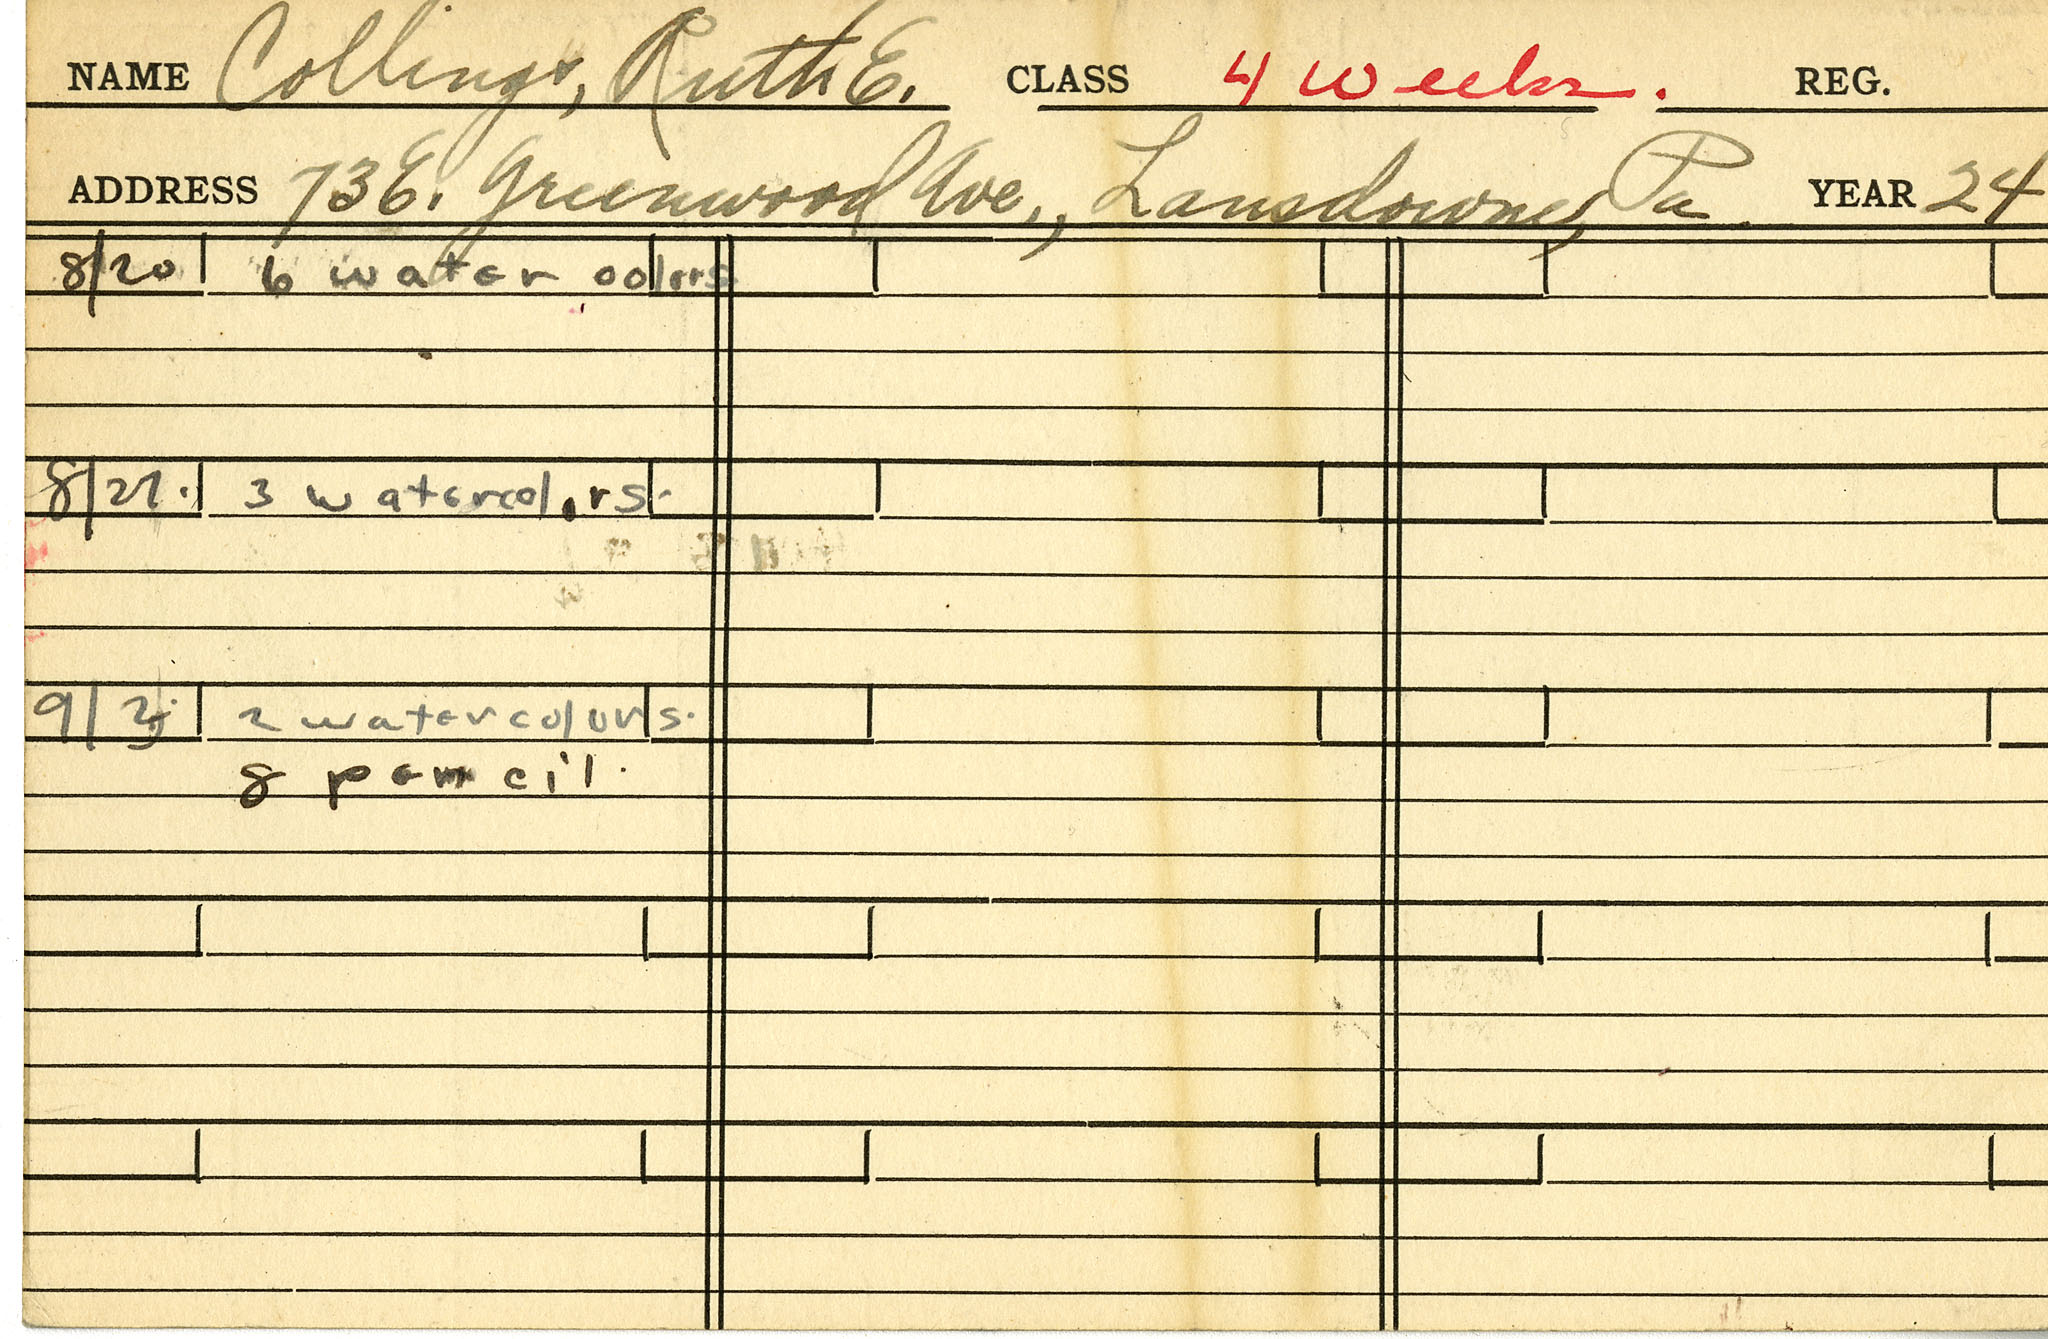 NAME Collings, Ruth E. CLASS 4 Weeks. REG.
ADDRESS 73 E. Greenwood Ave., Lansdowne, Pa. YEAR 24
8/20 6 water colors
8/27. 3 watercolors.
9/3. 2 watercolors.
8 pencil.